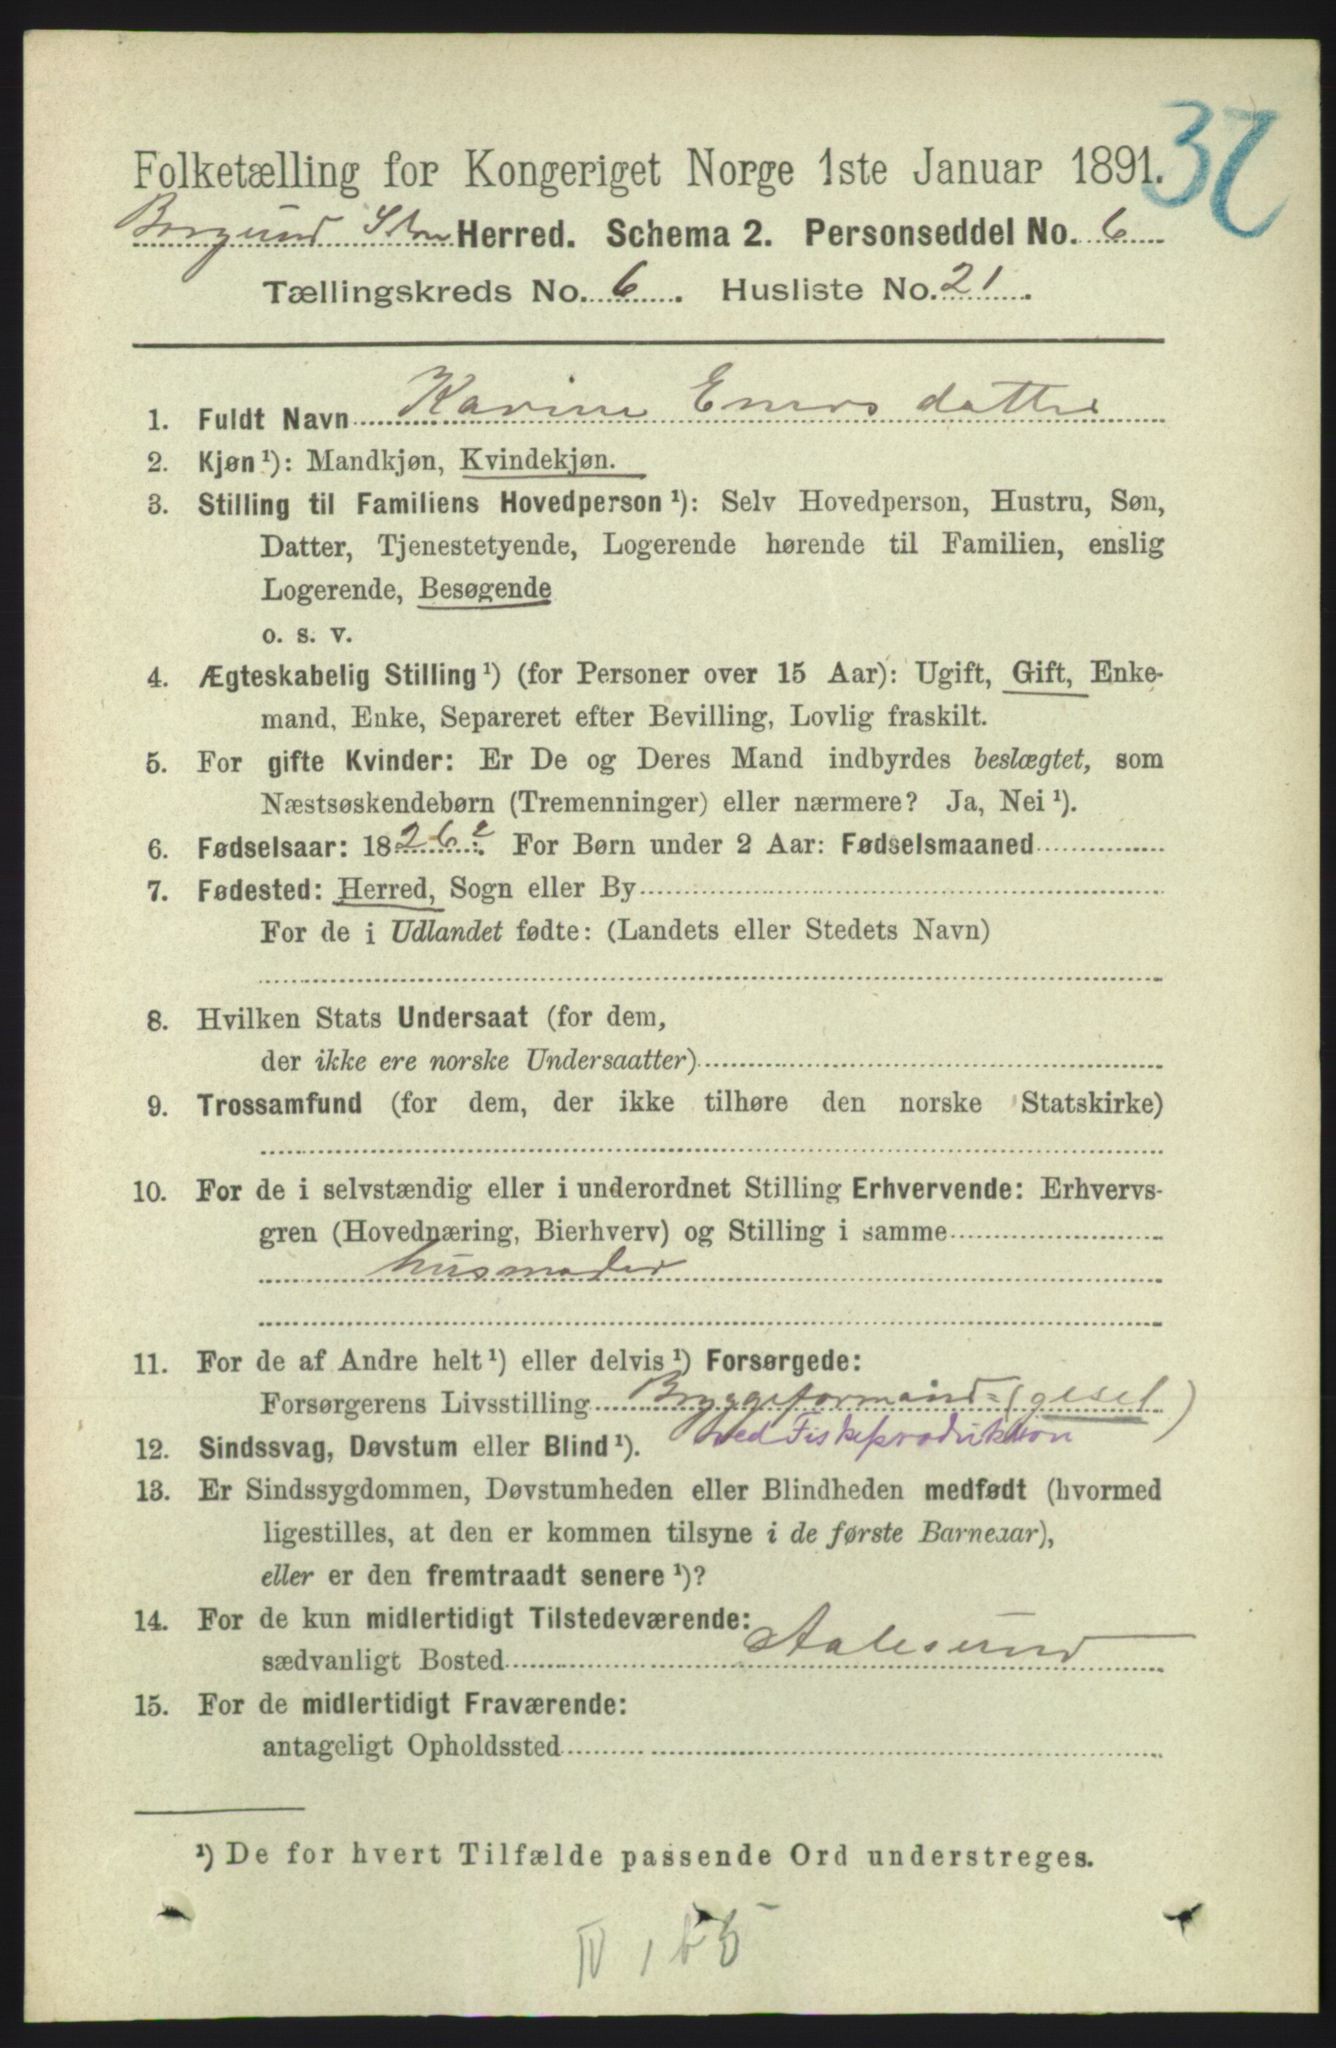 32
Folketælling for Kongeriget Norge 1ste Januar 1891.
Borgund Herred. Schema 2. Personseddel No. 6
Tællingskreds No. 6. Husliste No. 21.
1. Fuldt Navn Karine datter
2. Kjøn¹): Mandkjøn, Kvindekjøn.
3. Stilling til Familiens Hovedperson¹): Selv Hovedperson, Hustru, Søn,
Datter, Tjenestetyende, Logerende hørende til Familien, enslig
Logerende, Besøgende
o. s. v.
4. Ægteskabelig Stilling¹) (for Personer over 15 Aar): Ugift, Gift, Enke-
mand, Enke, Separeret efter Bevilling, Lovlig fraskilt.
5. For gifte Kvinder: Er De og Deres Mand indbyrdes beslægtet, som
Næstsøskendebørn (Tremenninger) eller nærmere? Ja, Nei¹).
6. Fødselsaar: 1826. For Børn under 2 Aar: Fødselsmaaned
7. Fødested: Herred, Sogn eller By
For de i Udlandet fødte: (Landets eller Stedets Navn)
8. Hvilken Stats Undersaat (for dem,
der ikke ere norske Undersaatter)
9. Trossamfund (for dem, der ikke tilhøre den norske Statskirke)
10. For de i selvstændig eller i underordnet Stilling Erhvervende: Erhvervs-
gren (Hovednæring, Bierhverv) og Stilling i samme
husmoder
11. For de af Andre helt¹) eller delvis¹) Forsørgede:
Forsørgerens Livsstilling Bryggeformand (gesel)
ved Fiskeproduktion
12. Sindssvag, Døvstum eller Blind¹).
13. Er Sindssygdommen, Døvstumheden eller Blindheden medfødt (hvormed
ligestilles, at den er kommen tilsyne i de første Barneaar),
eller er den fremtraadt senere¹)?
14. For de kun midlertidigt Tilstedeværende:
sædvanligt Bosted Aalesund
15. For de midlertidigt Fraværende:
antageligt Opholdssted
¹) De for hvert Tilfælde passende Ord understreges.